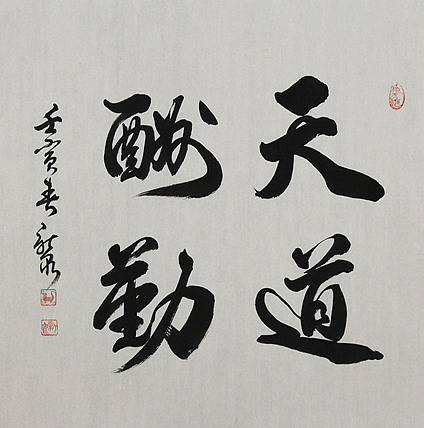 天道
酬勤
壬寅春